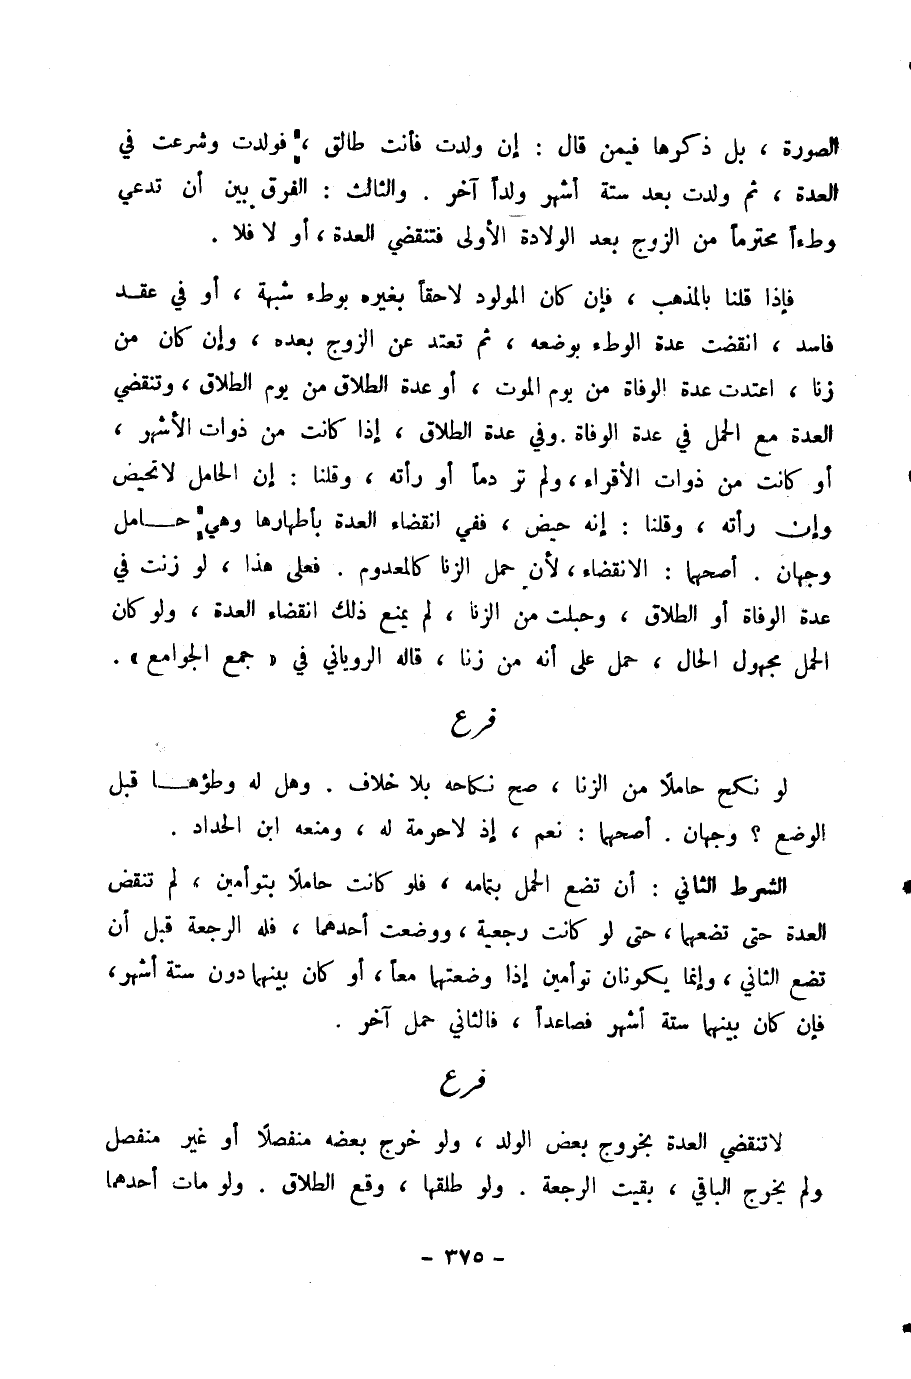 الصورة ، بل ذكروها فيمن قال : إن ولدت فأنت طالق ، فولدت وشرعت في
العدة ، ثم ولدت بعد ستة أشهر ولداً آخر . والثالث : الفرق بين أن تدعي
وطءاً محترماً من الزوج بعد الولادة الأولى فتنقضي العدة ، أو لا فلا .
فإذا قلنا بالمذهب ، فإن كان المولود لاحقاً بغيره بوطء شبهة ، أو في عقد
فاسد ، انقضت عدة الوطء بوضعه ، ثم تعتد عن الزوج بعده ، وإن كان من
زنا ، اعتدت عدة الوفاة من يوم الموت ، أو عدة الطلاق من يوم الطلاق ، وتنقضي
العدة مع الحمل في عدة الوفاة . وفي عدة الطلاق ، إذا كانت من ذوات الأشهر ،
أو كانت من ذوات الأقراء ، ولم تر دماً أو رأته ، وقلنا : إن الحامل لا تحيض
وإن رأته ، وقلنا : إنه حيض ، ففي انقضاء العدة بأطهارها وهي حامل
وجهان . أصحهما : الانقضاء ، لأن حمل الزنا كالمعدوم . فعلى هذا ، لو زنت في
عدة الوفاة أو الطلاق ، وحبلت من الزنا ، لم يمنع ذلك انقضاء العدة ، ولو كان
الحمل مجهول الحال ، حمل على أنه من زنا ، قاله الروياني في « جمع الجوامع » .
فرع
لو نكح حاملاً من الزنا ، صح نكاحه بلا خلاف . وهل له وطؤها قبل
الوضع ؟ وجهان . أصحهما : نعم ، إذ لا حرمة له ، ومنعه ابن الحداد .
الشرط الثاني : أن تضع الحمل بتمامه ، فلو كانت حاملاً بتوأمين ، لم تنقض
العدة حتى تضعهما ، حتى لو كانت رجعية ، ووضعت أحدهما ، فله الرجعة قبل أن
تضع الثاني ، وإنما يكونان توأمين إذا وضعتهما معاً ، أو كان بينهما دون ستة أشهر ،
فإن كان بينهما ستة أشهر فصاعداً ، فالثاني حمل آخر .
فرع
لا تنقضي العدة بخروج بعض الولد ، ولو خرج بعضه منفصلاً أو غير منفصل
ولم يخرج الباقي ، بقيت الرجعة . ولو طلقها ، وقع الطلاق . ولو مات أحدهما
- ٣٧٥ -